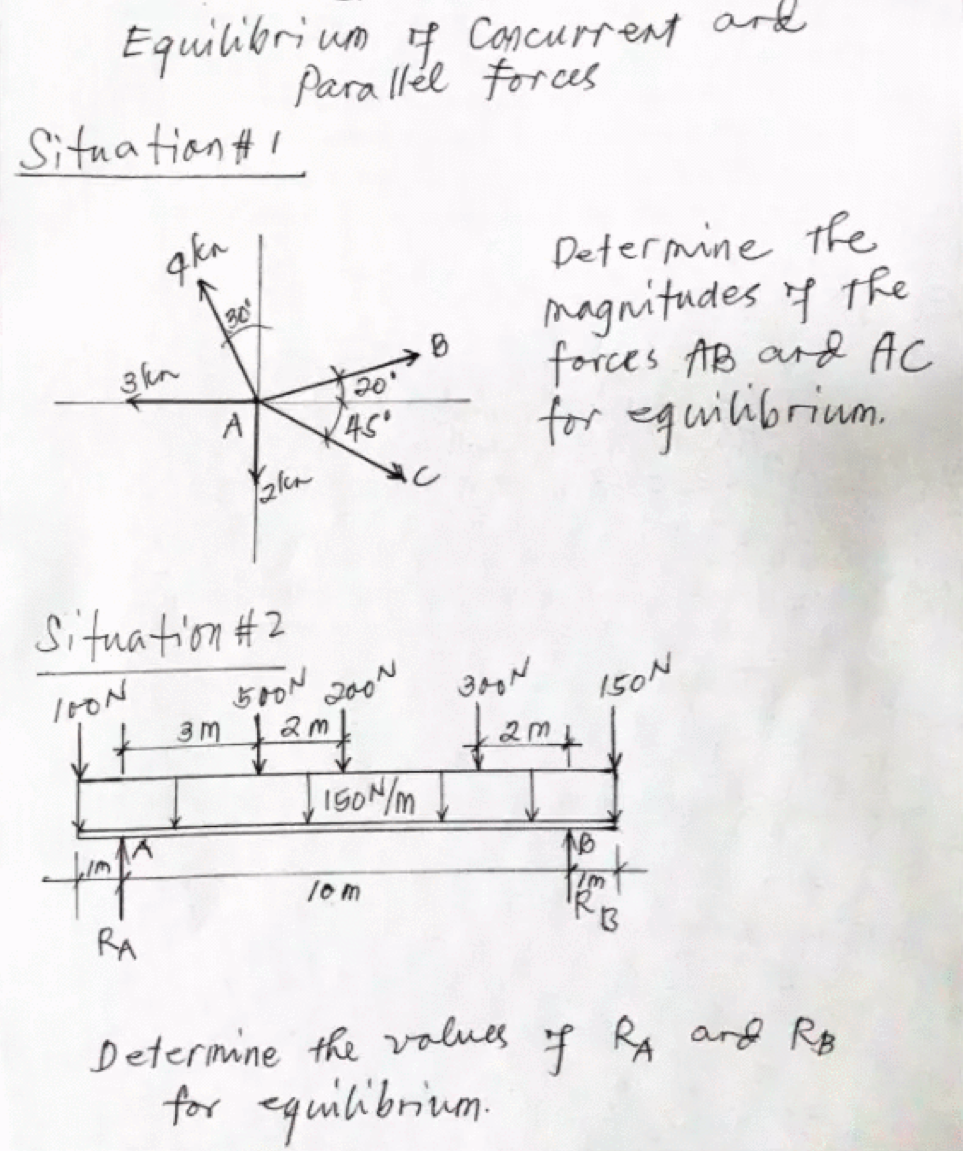 Equilibrium of Concurrent and
Parallel forces
Situation # 1
4 kn
30°
3 kn
B
20°
A
45°
C
2 kn
Determine the
magnitudes of the
forces AB and AC
for equilibrium.
Situation # 2
100N 500N 200N 300N 150N
3m 2m 2m
150N/m
A B
1m 10m 1m
RA RB
Determine the values of RA and RB
for equilibrium.